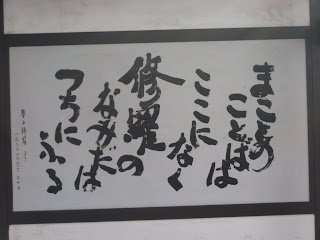 まことの
ことばは
ここになく
修羅の
なみだは
つちにふる
春と修羅 より